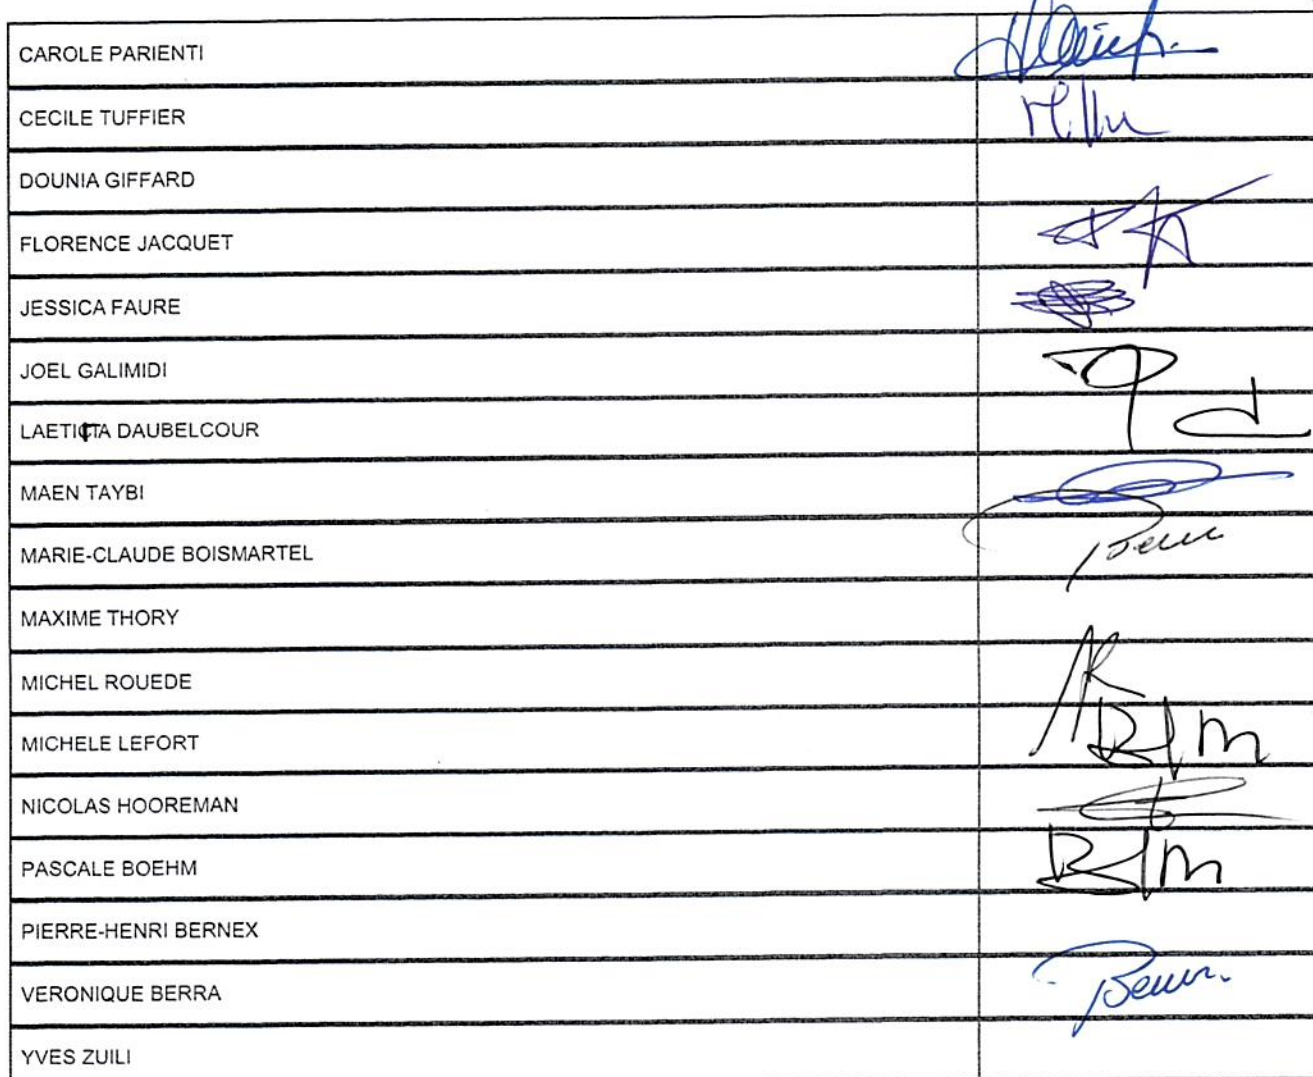 CAROLE PARIENTI
CECILE TUFFIER
DOUNIA GIFFARD
FLORENCE JACQUET
JESSICA FAURE
JOEL GALIMIDI
LAETICTA DAUBELCOUR
MAEN TAYBI
MARIE-CLAUDE BOISMARTEL
MAXIME THORY
MICHEL ROUEDE
MICHELE LEFORT
NICOLAS HOOREMAN
PASCALE BOEHM
PIERRE-HENRI BERNEX
VERONIQUE BERRA
YVES ZUILI